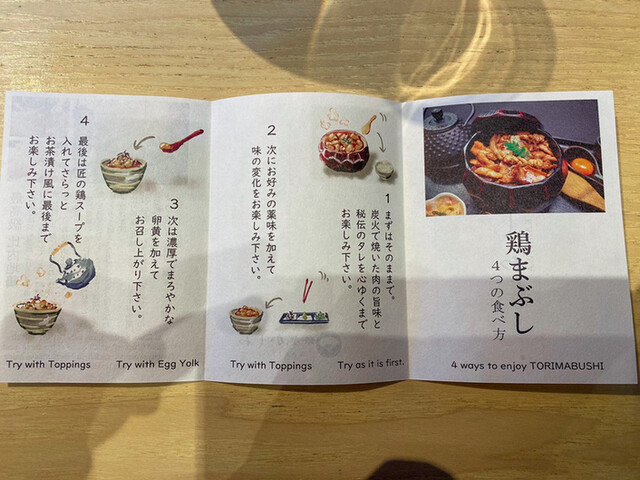 鶏まぶし
4つの食べ方
4 ways to enjoy TORIMABUSHI
1
まずはそのままで。
炭火で焼いた肉の旨味と
秘伝のタレを心ゆくまで
お楽しみ下さい。
Try as it is first.
2
次にお好みの薬味を加えて
味の変化をお楽しみ下さい。
Try with Toppings
3
次は濃厚でまろやかな
卵黄を加えて
お召し上がり下さい。
Try with Egg Yolk
4
最後は匠の鶏スープを
入れてさらっと
お茶漬け風に最後まで
お楽しみ下さい。
Try with Toppings